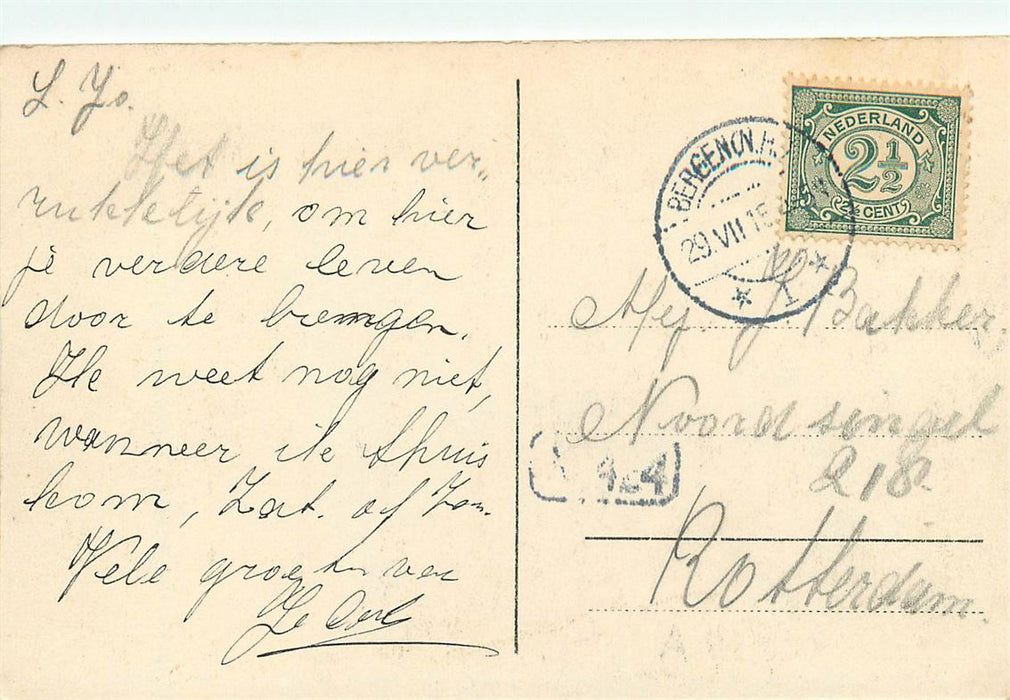 L. Jo.
Het is hier ver„
rukkelijk, om hier
je verdere leven
door te brengen.
Ik weet nog niet,
wanneer ik thuis
kom, Zat. of Zon.
Vele groeten van
NEDERLAND
2½
CENT
BERGEN (N.H.)
29.VII.15
1
Mej. J. Bakker.
Noordsingel
218.
Rotterdam.